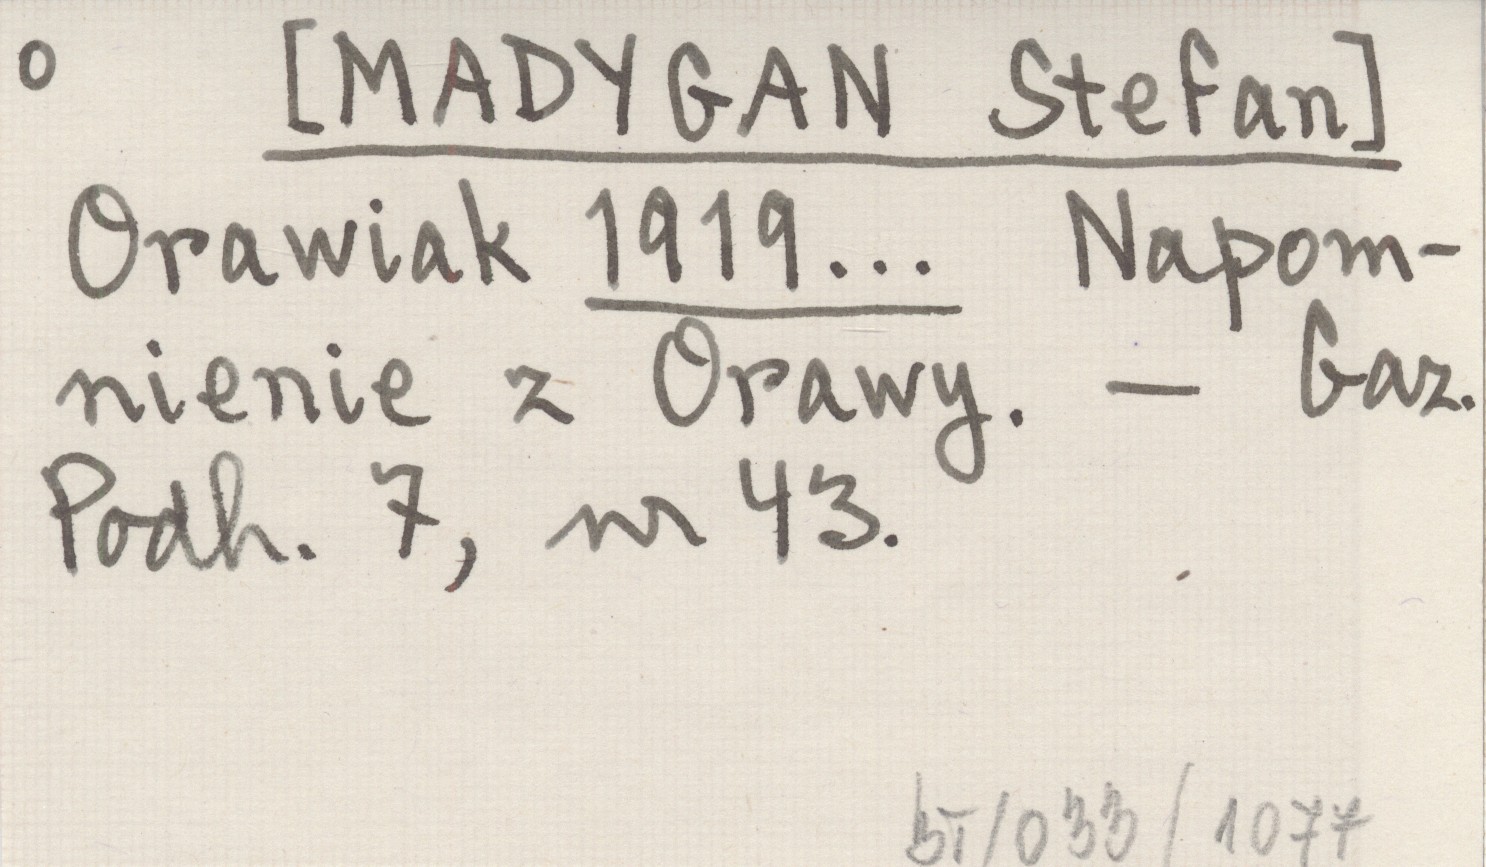 o [MADYGAN Stefan]
Orawiak 1919... Napom-
nienie z Orawy. — Gaz.
Podh. 7, nr 43.
bI/033/1077